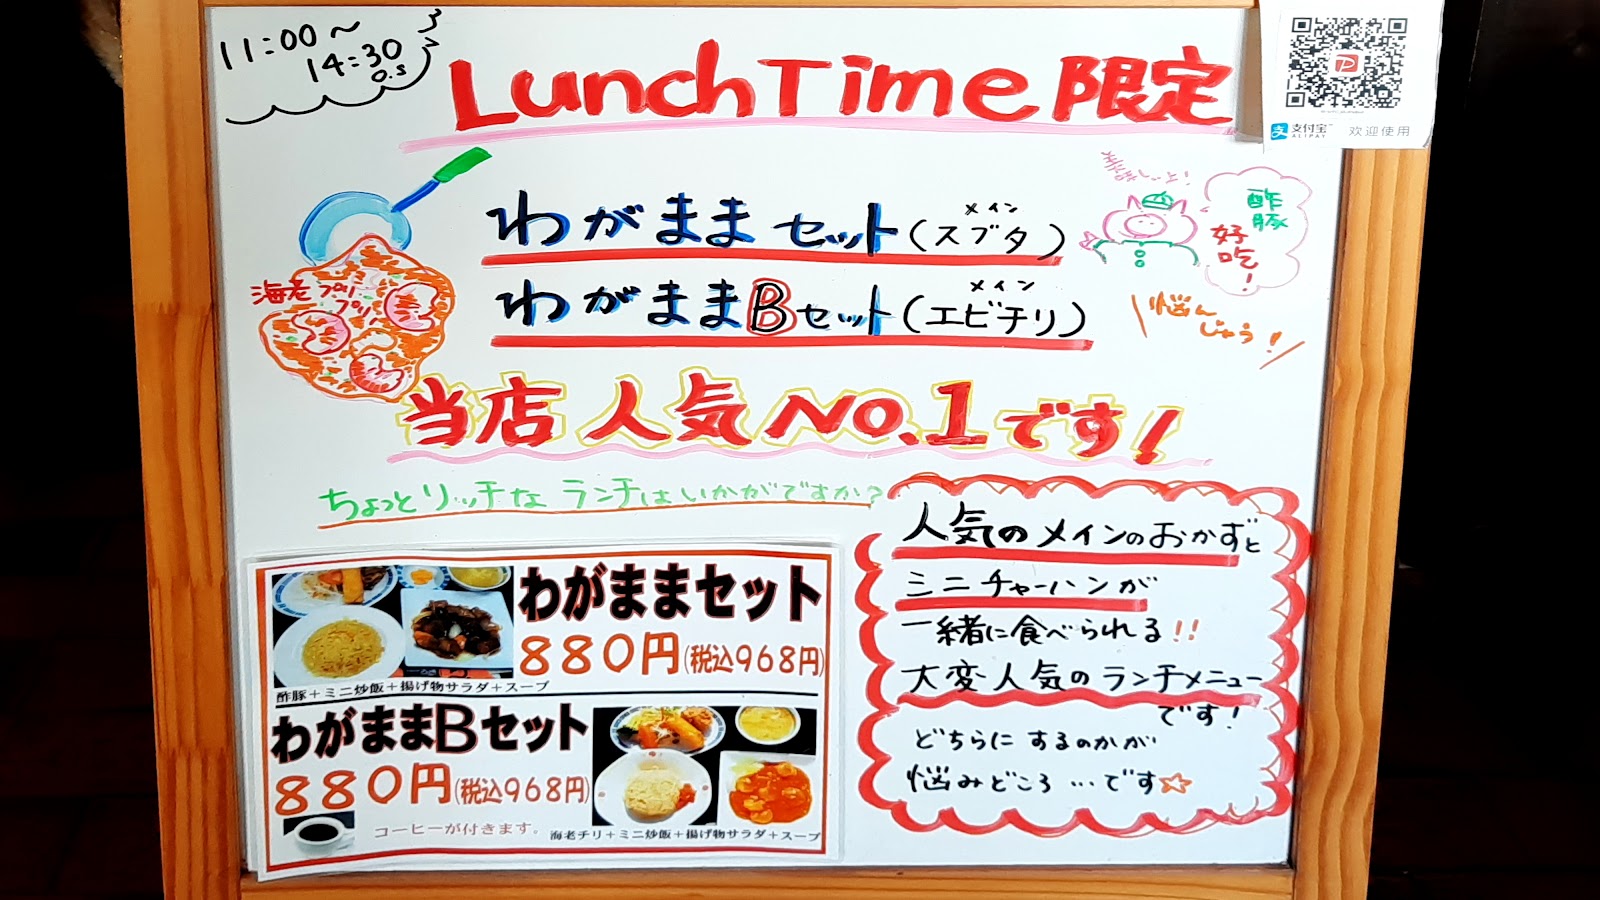 11:00～
14:30
O.S
LunchTime限定
支付宝
ALIPAY
欢迎使用
メイン
わがまませット(スブタ)
酢豚
好吃!
海老プリプリ
メイン
わがままBセット(エビチリ)
悩んじゃう!
当店人気No.1です!
ちょっとリッチなランチはいかがですか?
人気のメインのおかずと
ミニチャーハンが
一緒に食べられる!!
大変人気のランチメニュー
です!
どちらにするのかが
悩みどころ…です☆
わがままセット
880円(税込968円)
酢豚+ミニ炒飯+揚げ物サラダ+スープ
わがままBセット
880円(税込968円)
コーヒーが付きます。
海老チリ+ミニ炒飯+揚げ物サラダ+スープ